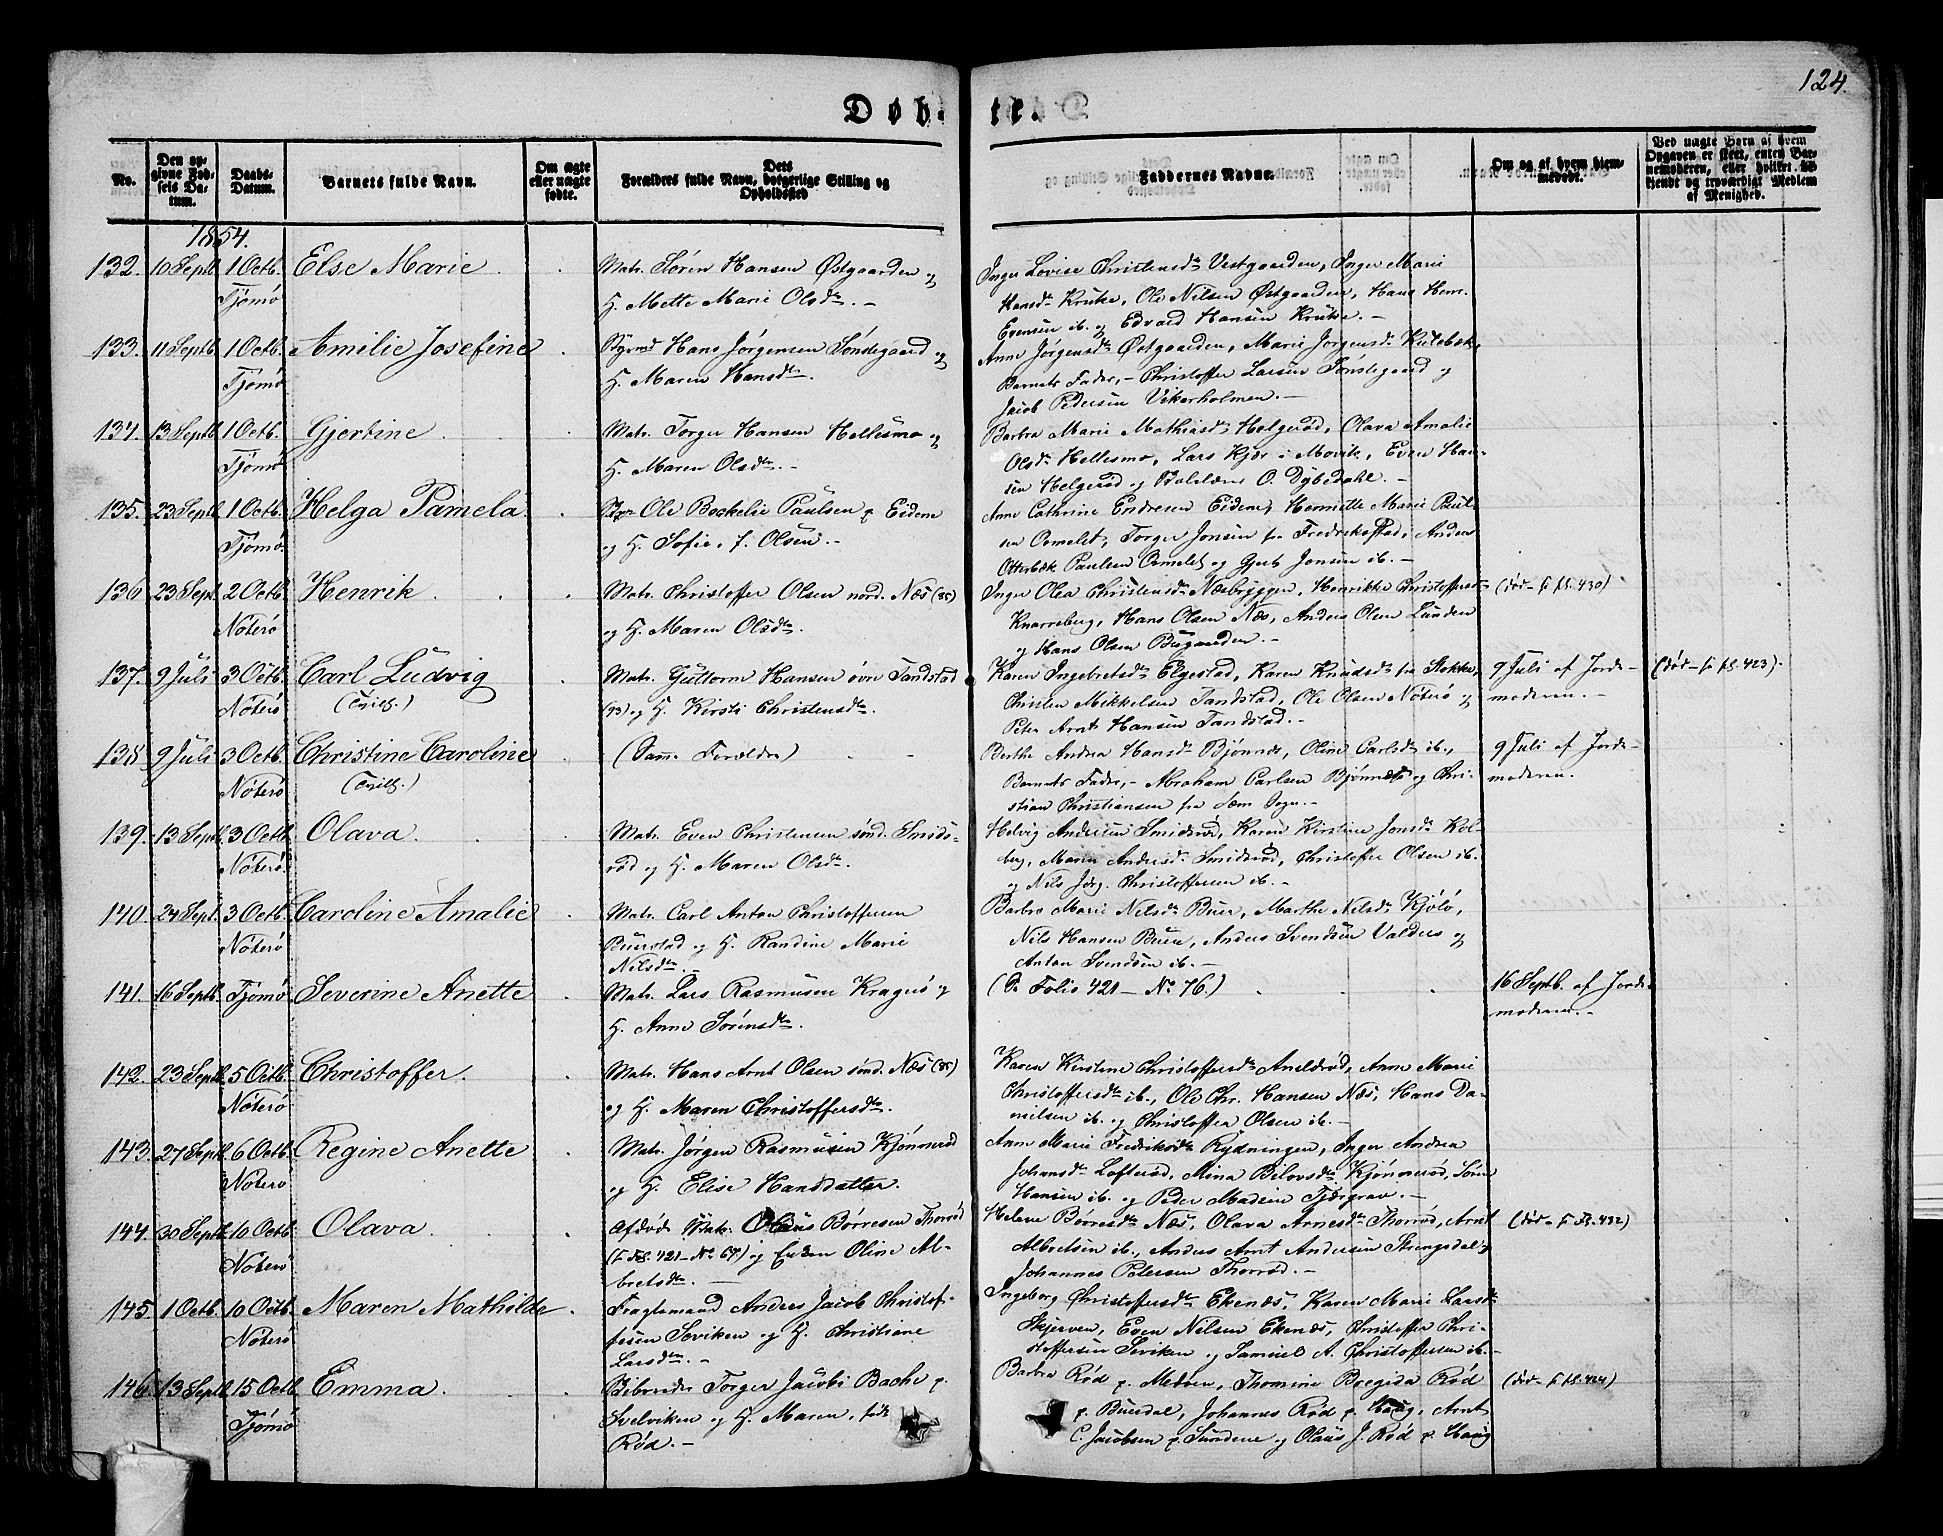 124.
Døbte.
No.
Den opgivne Fødsels Datum.
Daabs-Datum.
Barnets fulde Navn.
Om ægte eller uægte fødte.
Dets Forældres fulde Navn, borgerlige Stilling og Opholdssted
Faddernes Navne.
Om og af hvem hjemmedøbt.
Ved uægte Børn af hvem Opgaven er skeet, enten Barnemoderen, eller hvilket bekjendt og troværdigt Medlem af Menighed.
1854.
132. 10 Septb. 1 Octb. Tjømø Else Marie
Matr. Søren Hansen Østgaarden og
H. Mette Marie Olsdtr. –
Inger Lovise Christensdtr Vestgaarden, Inger Marie
Hansdtr Kruke, Ole Nilsen Østgaarden, Hans Herm.
Evensen ib. og Edvard Hansen Kruke. –
133. 11 Septb. 1 Octb. Tjømø Amilie Josefine
Styrmd Hans Jørgensen Søndegaard og
H. Maren Hansdtr.
Anne Jørgensdtr Østgaarden, Marie Jørgensdtr Kulebæk,
Barnets Fader, – Christoffer Larsen Søndegaard og
Jacob Pedersen Vikerholmen. –
134. 13 Septb. 1 Octb. Tjømø Gjertine
Matr. Torger Hansen Hellesmo og
H. Maren Olsdtr. –
Barbra Marie Mathiasdtr Helgerød, Olava Amalie
Olsdtr Hellesmo, Lars Kjær i Movik, Even Hansen
Helgerød og O. Dybedahl. –
135. 23 Septb. 1 Octb. Tjømø Helga Pamela
Ole Bockelie Paulsen p. Eidene
og H. Sofie, f. Olsen. –
Anne Cathrine Endresen Eidene, Henriette Marie Paulsen
Ormelet, Torger Jonsen fra Fredrikstad, Anders
Otterbæk Paulsen Ormelet og Gjert Jonsen ib. –
136 23 Sept. 2 Octb. Nøterø Henrik
Matr. Christoffer Olsen nord. Næs (35)
og H. Maren Olsdtr.
Inger Olea Christensdtr Næsbryggen, Henrikke Christoffersdtr
Knarreberg, Hans Olsen Næs, Anders Olsen Lunden
og Hans Olsen Bugaarden. –
(død – fol. 430)
137. 9 Juli 3 Octb. Nøterø Carl Ludvig (Tvill.)
Matr. Guttorm Hansen øvre Tandstad
(93) og H. Kirsti Christensdtr.
Karen Ingebretsdtr Elgestad, Karen Knudsdtr fra Stokke,
Christen Mikkelsen Tandstad, Ole Olsen Nøterø og
Peter Arnt Hansen Tandstad. –
9 Juli af Jordemoderen. –
(død – fol. 423).
138 9 Juli 3 Octb. Nøterø Christine Caroline (Tvill.)
(Sam. Forældre)
Berthe Andrea Hansdtr Bjønnes, Oline Carlsdtr ib.,
Barnets Fader, – Abraham Carlsen Bjønnes og Christian
Christiansen fra Sem Sogn. –
9 Juli af Jordemoderen.
139. 13 Septb. 3 Octb. Nøterø Olava.
Matr. Even Christensen sønd. Smidsrød
og H. Maren Olsdtr.
Helvig Andersen Smidsrød, Karen Kirstine Jonsdtr Kolberg,
Maren Andersdtr Smidsrød, Christoffer Olsen ib.
og Nils Jørg. Christoffersen ib. –
140. 24 Sept. 3 Octb. Nøterø Caroline Amalie
Matr. Carl Anton Christoffersen
Buerstad og H. Randine Marie
Nilsdtr. –
Barbro Marie Nilsdtr Buer, Marthe Nilsdtr Kjølø,
Nils Hansen Buer, Anders Svendsen Valders og
Anton Svendsen ib. –
141. 16 Septb. Tjømø Severine Anette
Matr. Lars Rasmusen Kragerø og
H. Anne Sørensdtr.
(Se Folio 421 – No 76.)
16 Septb. af Jordemoderen. –
142. 23 Septb. 5 Octb. Nøterø Christoffer.
Matr. Hans Arnt Olsen sønd. Næs (35)
og H. Maren Christoffersdtr.
Karen Kirstine Christoffersdtr Arildsrød, Anne Marie
Christoffersdtr ib., Ole Chr. Hansen Næs, Hans Danielsen
ib. og Christoffer Olsen ib. –
143. 27 Septb. 6 Octb. Nøterø Regine Anette
Matr. Jørgen Rasmusen Kjønnerød
og H. Elise Hansdatter.
Anne Marie Fredriksdtr Rydningen, Inger Andrea
Johansdtr Lofterød, Mina Kjønnerød, Søren
Hansen ib. og Peder Madsen Tjærgrav. –
144. 30 Septb. 10 Octb. Nøterø Olava.
Afdøde Matr. Olaus Børresen Thorød
(fol. 421 – No 67) og Enken Oline Albretsdtr. –
Helene Børresdtr Næs, Olava Arnesdtr Thorrød, Arnt
Albretsen ib., Anders Arnt Andersen Strengsdal og
Johannes Petersen Thorrød. –
(død – fol. 432)
145. 1 Octb. 10 Octb. Nøterø Maren Mathilde
Fragtemand Anders Jacob Christoffersen
Seviken og H. Christiane
Larsdtr. –
Ingeborg Christoffersdtr Ekenæs, Karen Marie Larsdtr
Skjerven, Even Nilsen Ekenæs, Christoffer Christoffersen
Seviken og Samuel A. Christoffersen ib. –
146 13 Septb. 15 Octb. Tjømø Emma.
Torger Jacobi Bache p.
Svelviken og H. Maren, født
Rød. –
Barbra Rød p. Medøen, Thomine Bregida Rød
p. Buerdal, Johannes Rød p. Haug, Arnt
C. Jacobsen p. Sundene og Olaus J. Rød p. Haug
(død – fol. 424)